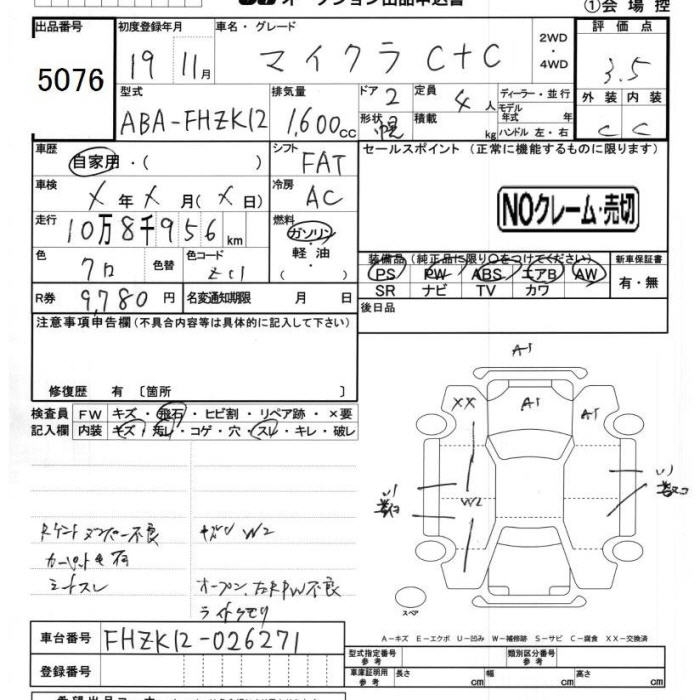 オークション出品申込書
①会場控
出品番号
5076
初度登録年月
19 11月
車名・グレード
マイクラ C+C
2WD
・
4WD
評価点
3.5
外装 内装
C C
型式
ABA-FHZK12
排気量
1,600cc
ドア
2
形状
定員
4人
積載
kg
ディーラー・並行
モデル
年式 年
ハンドル 左・右
車歴
自家用・( )
シフト
FAT
車検
X年X月(X日)
冷房
AC
走行
10万8千956km
燃料
ガソリン
・
軽油
・
色
クロ
色替
色コード
R券
9,780円
名変通知期限 月 日
セールスポイント(正常に機能するものに限ります)
NOクレーム・売切
装備品(純正品に限り○をつけてください)
PS PW ABS エアB AW
SR ナビ TV カワ
新車保証書
有・無
後日品
注意事項申告欄(不具合内容等は具体的に記入して下さい)
修復歴 有 〔箇所 〕
検査員
記入欄
FW キズ・飛石・ヒビ割・リペア跡・×要
内装 キズ・汚レ・コゲ・穴・スレ・キレ・破レ
A1
XX
A1
A1
W2
W2
不良
シートスレ
オープン、右RPW不良
ライトクモリ
スペア
A-キズ E-エクボ U-凹み W-補修跡 S-サビ C-腐食 XX-交換済
車台番号
FHZK12-026271
登録番号
型式指定番号
参考
類別区分番号
参考
車庫証明用
参考
長さ cm
幅 cm
高さ cm